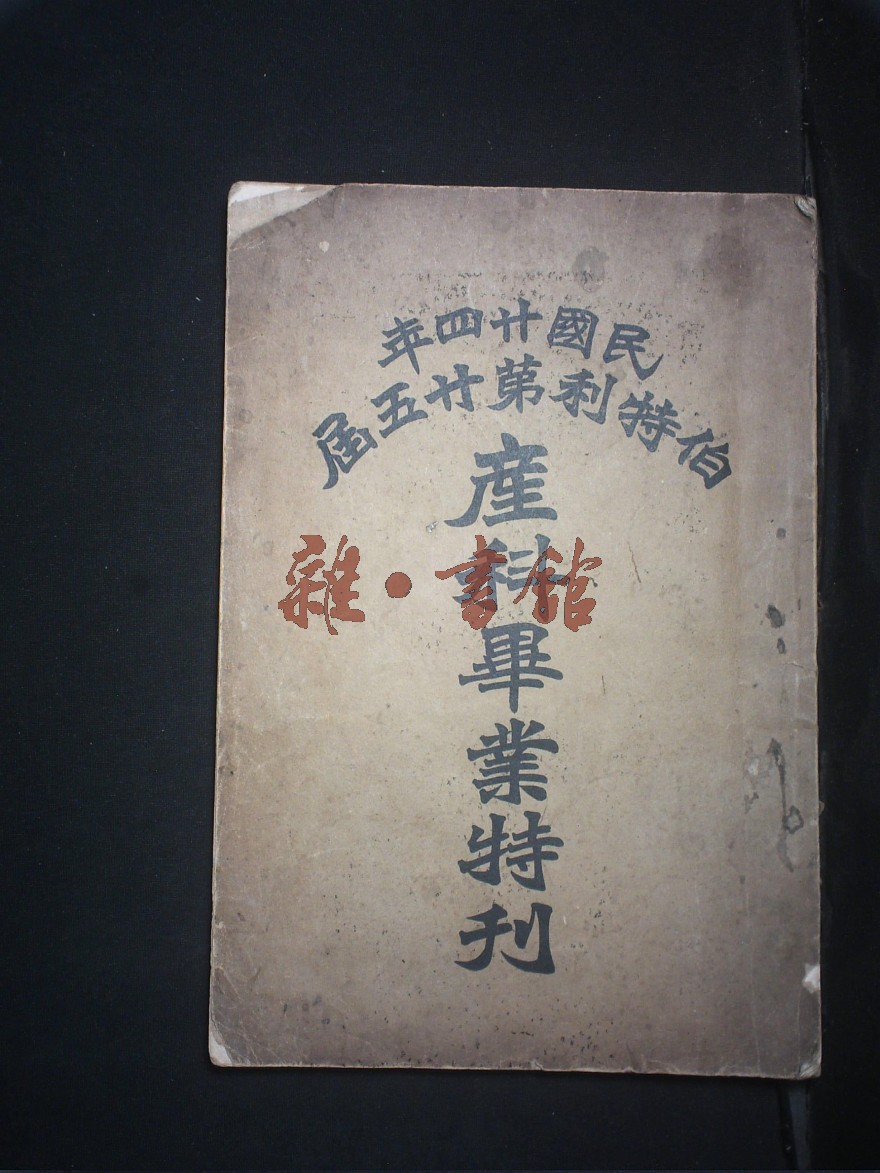 民國廿四年
伯特利第廿五屆
產科畢業特刊
雜·書館